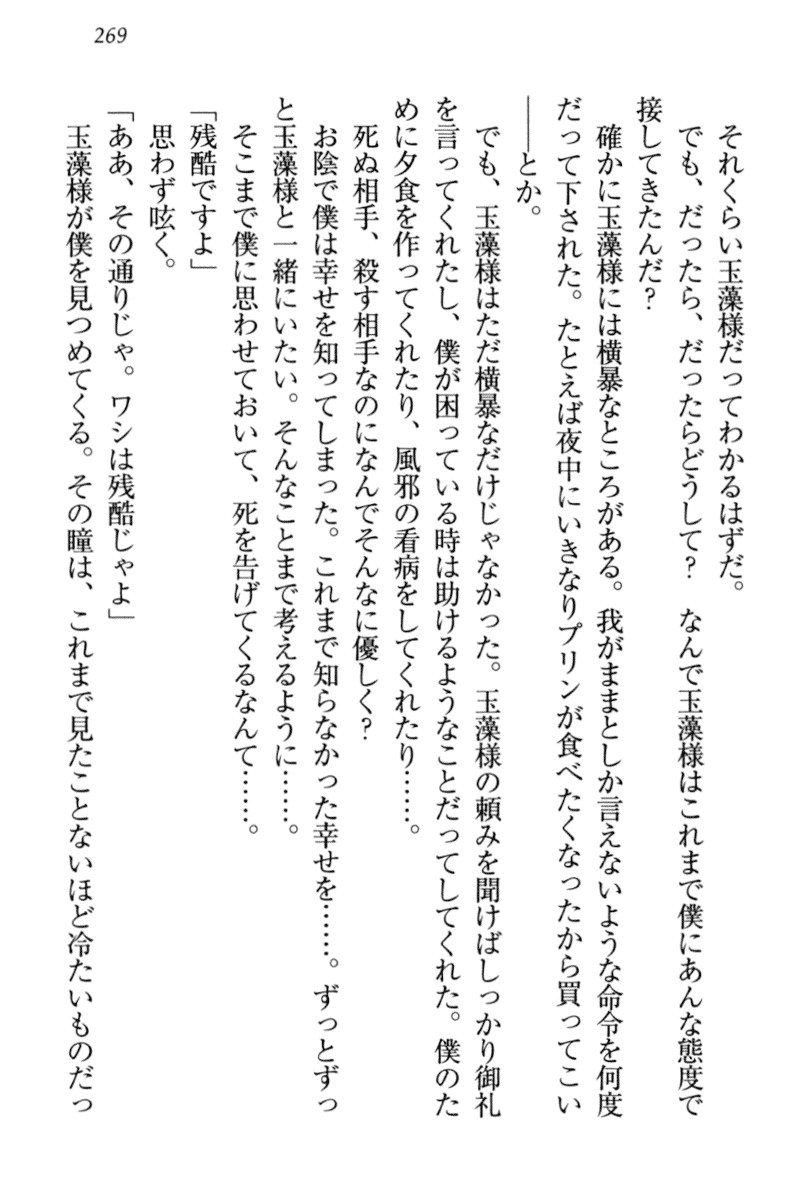 269
それくらい玉藻様だってわかるはずだ。
でも、だったら、だったらどうして？　なんで玉藻様はこれまで僕にあんな態度で
接してきたんだ？
確かに玉藻様には横暴なところがある。我がままとしか言えないような命令を何度
だって下された。たとえば夜中にいきなりプリンが食べたくなったから買ってこい
――とか。
でも、玉藻様はただ横暴なだけじゃなかった。玉藻様の頼みを聞けばしっかり御礼
を言ってくれたし、僕が困っている時は助けるようなことだってしてくれた。僕のた
めに夕食を作ってくれたり、風邪の看病をしてくれたり……。
死ぬ相手、殺す相手なのになんでそんなに優しく？
お陰で僕は幸せを知ってしまった。これまで知らなかった幸せを……。ずっとずっ
と玉藻様と一緒にいたい。そんなことまで考えるように……。
そこまで僕に思わせておいて、死を告げてくるなんて……。
「残酷ですよ」
思わず呟く。
「ああ、その通りじゃ。ワシは残酷じゃよ」
玉藻様が僕を見つめてくる。その瞳は、これまで見たことないほど冷たいものだっ